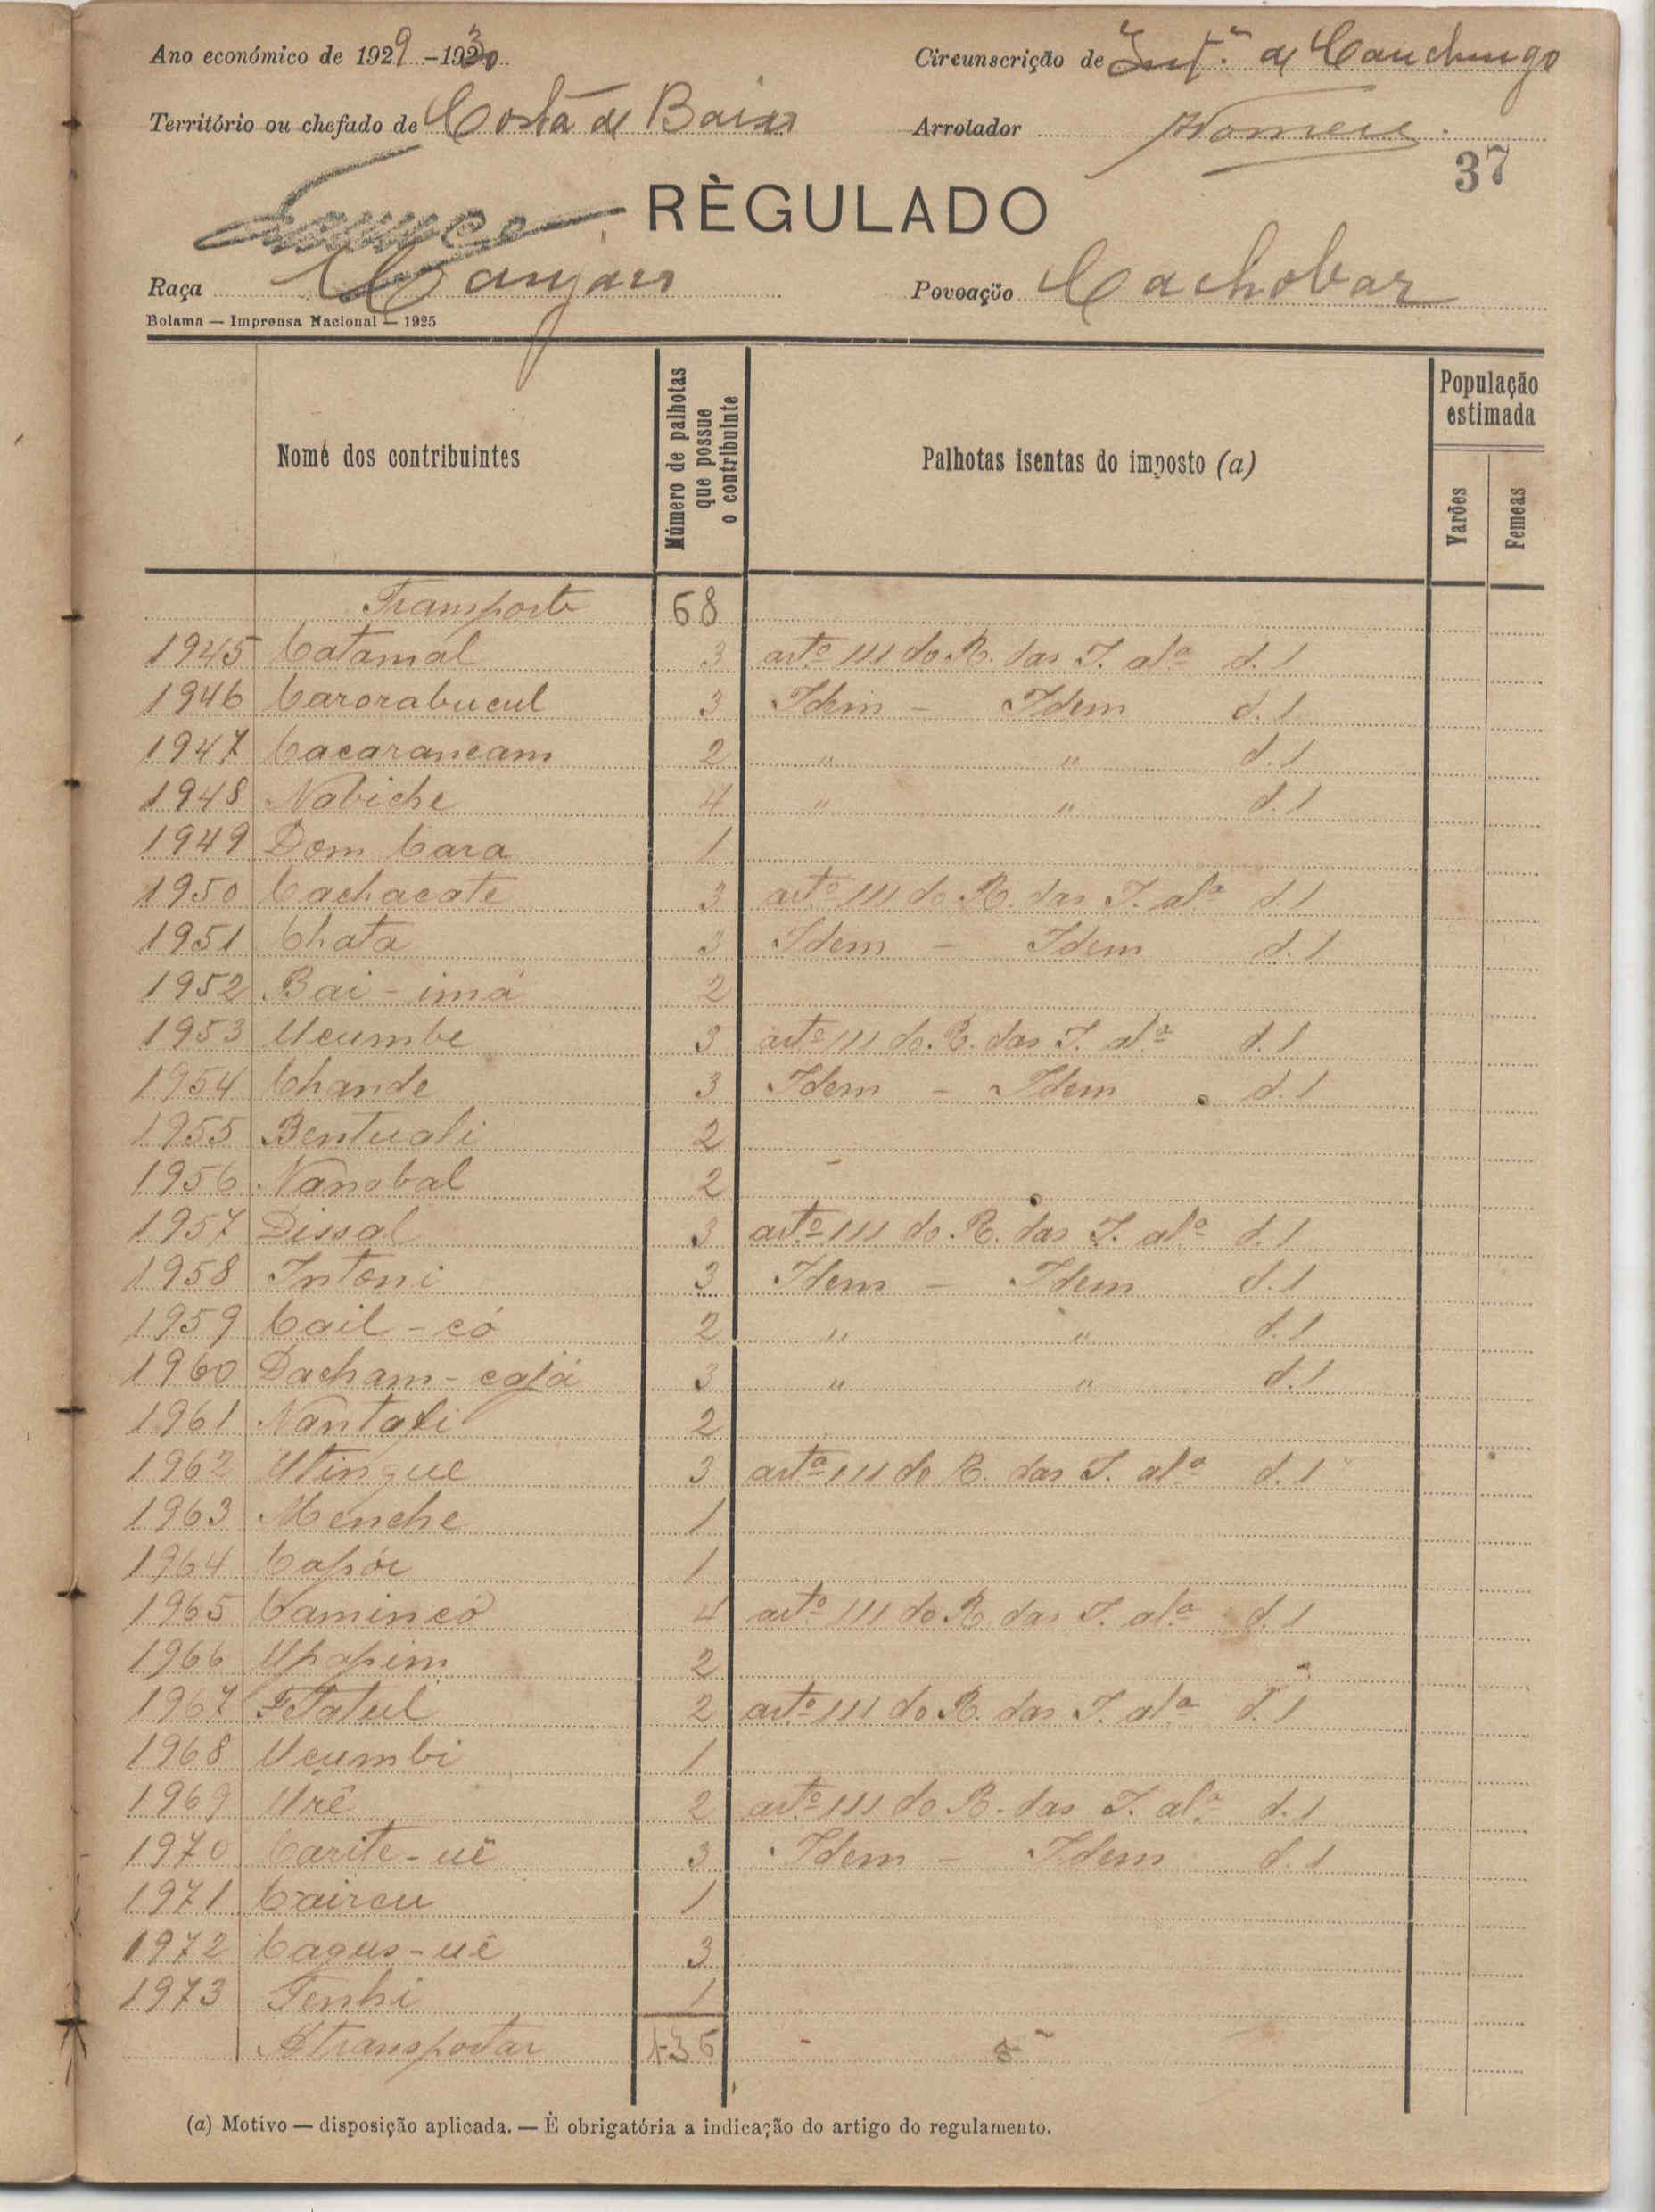 Ano económico de 1929-1930
Circunscrição de Int.ª de Canchungo
Território ou chefado de Costa de Baixo
Arrolador
37
RÈGULADO
Raça
Povoação Cachobar
Bolama — Imprensa Nacional — 1925
Nome dos contribuintes
Número de palhotas que possue o contribuinte
Palhotas isentas do imposto (a)
População estimada
Varões
Femeas
Transporte 68
1945 Catamal 3 artº 111 do R. das I. alª d. 1
1946 Carorabucul 3 Idem - Idem d. 1
1947 Cacarancam 2 " " d. 1
1948 Nabiche 4 " " d. 1
1949 Dom Cara 1
1950 Cachacate 3 artº 111 do R. das I. alª d. 1
1951 Chata 3 Idem - Idem d. 1
1952 Bai-imá 2
1953 Ucumbe 3 artº 111 do R. das I. alª d. 1
1954 Chande 3 Idem - Idem d. 1
1955 Bentuali 2
1956 Nanobal 2
1957 Dissal 3 artº 111 do R. das I. alª d. 1
1958 Intoni 3 Idem - Idem d. 1
1959 Cail-có 2 " " d. 1
1960 Dacham-cajá 3 " " d. 1
1961 Nantafi 2
1962 Utingue 3 artº 111 do R. das I. alª d. 1
1963 Menche 1
1964 Capór 1
1965 Camincó 4 artº 111 do R. das I. alª d. 1
1966 Upapim 2
1967 2 artº 111 do R. das I. alª d. 1
1968 Ucumbi 1
1969 Urê 2 artº 111 do R. das I. alª d. 1
1970 Carite-uê 3 Idem - Idem d. 1
1971 Caircu 1
1972 Cagus-uê 3
1973 Tenhi 1
A transportar 136
(a) Motivo — disposição aplicada. — È obrigatória a indicação do artigo do regulamento.